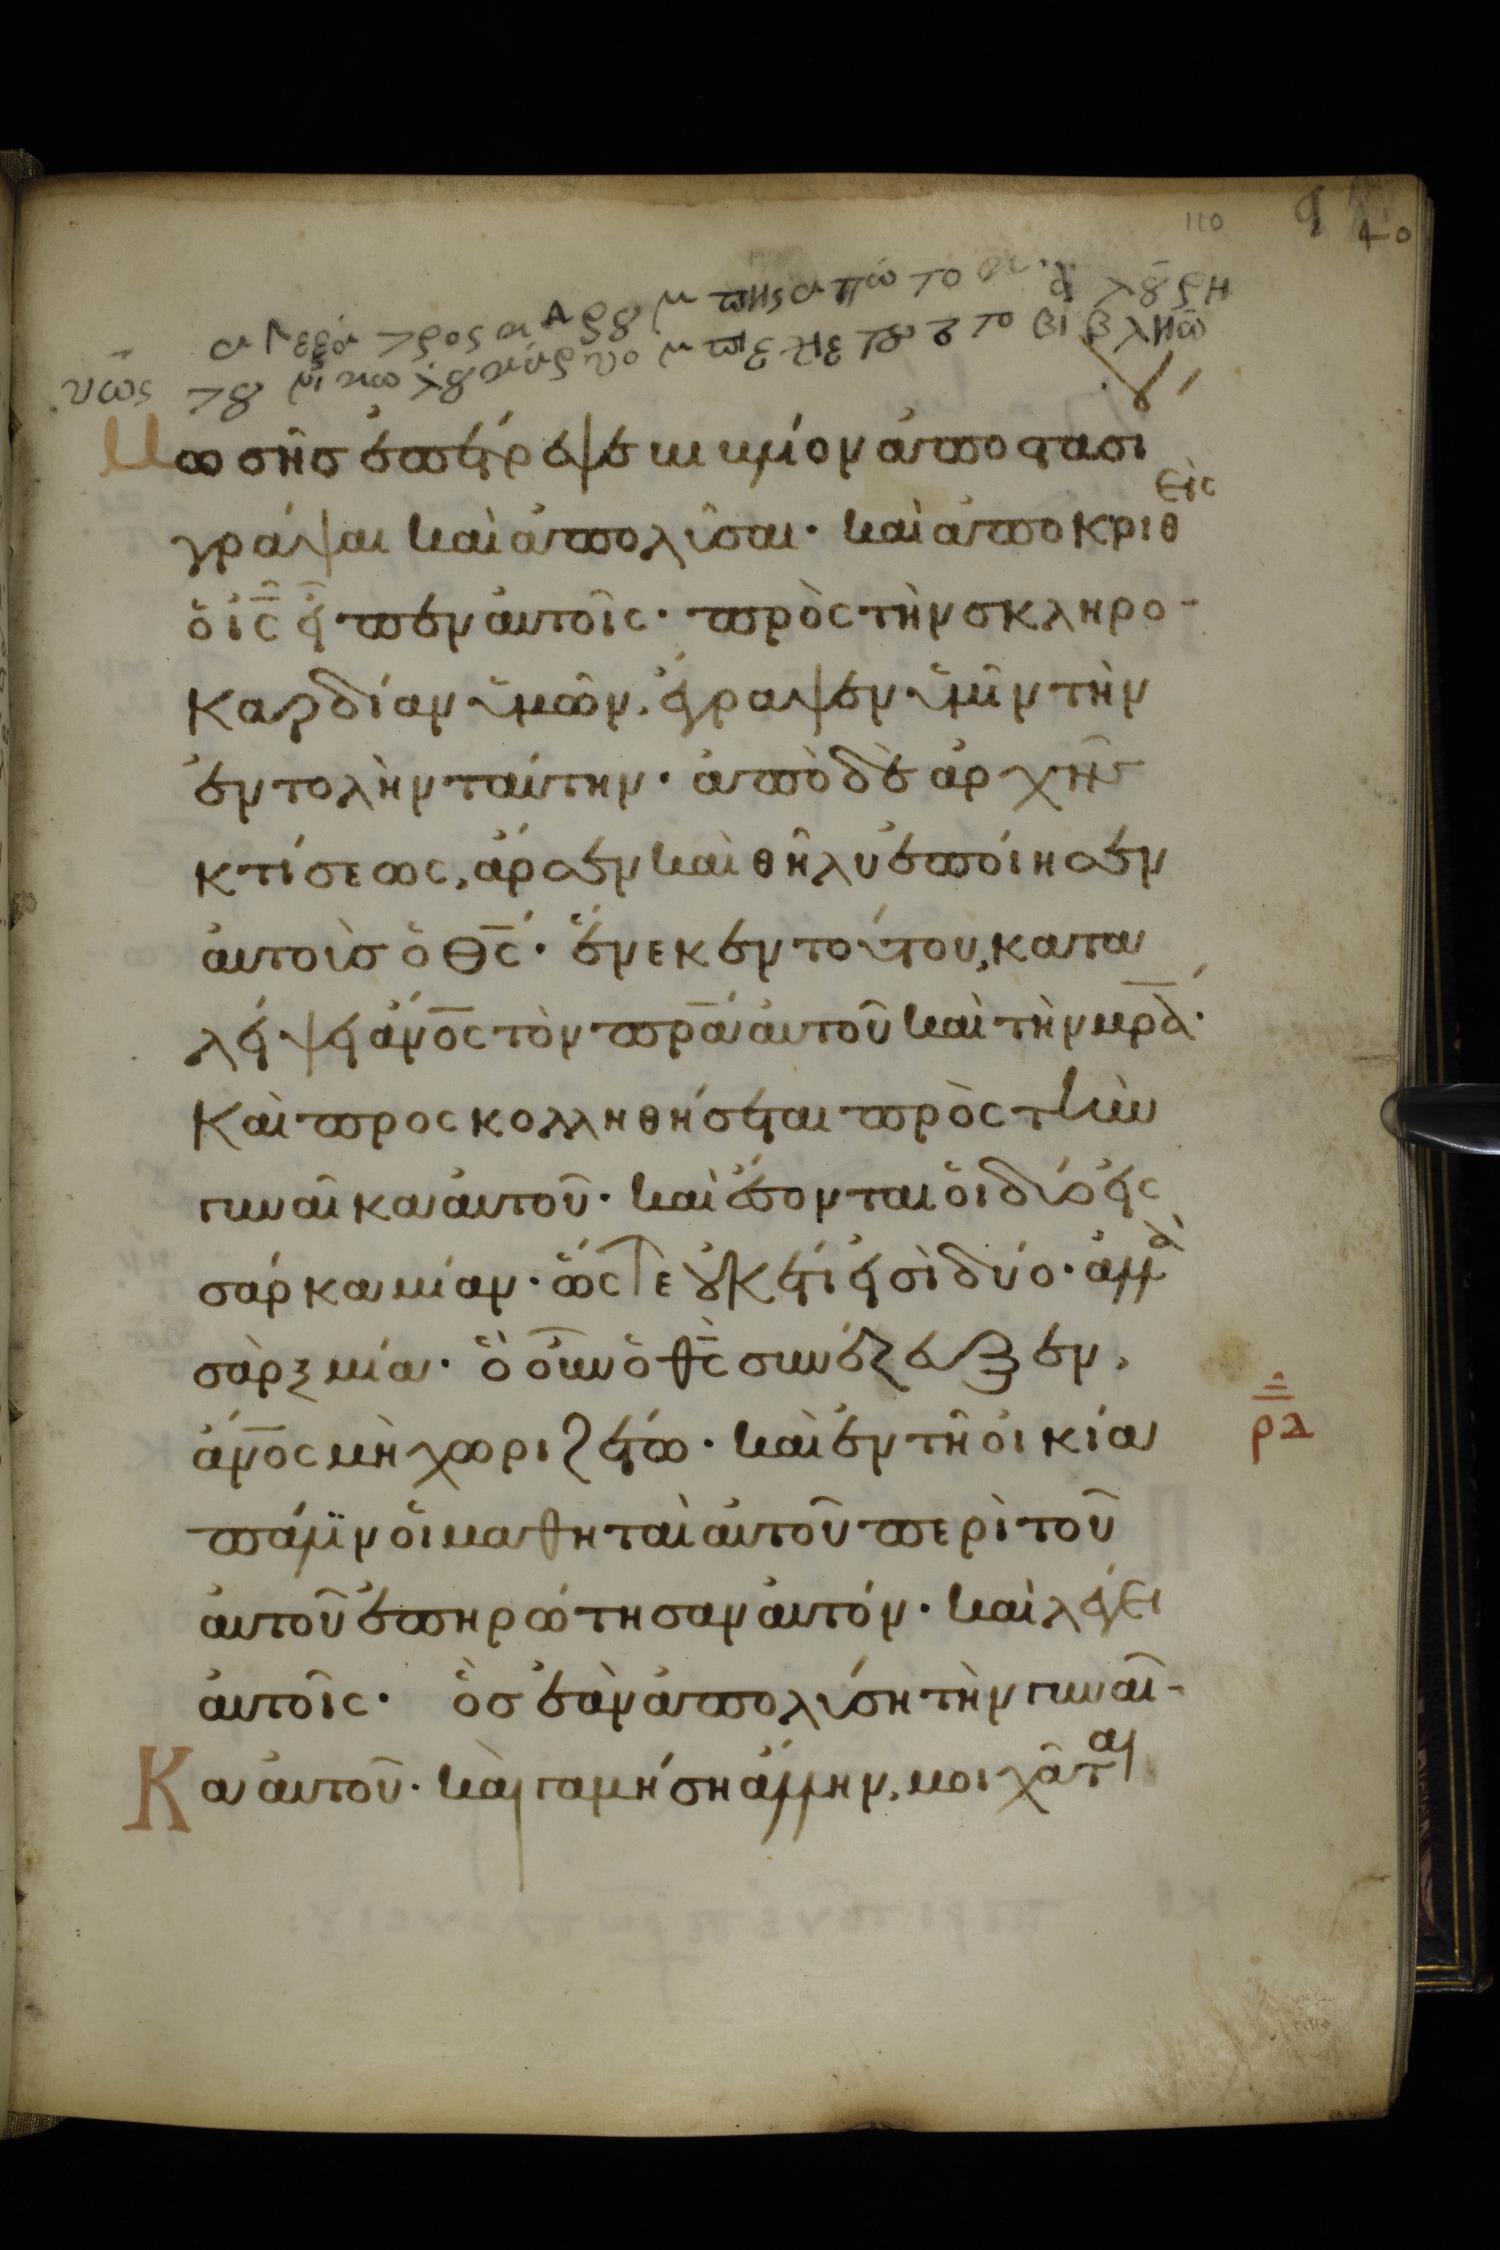 110
40
Μωσῆς ἐπέτρεψε βιβλίον ἀποστασί
γράψαι καὶ ἀπολῦσαι· καὶ ἀποκριθεὶς
ὁ ις̅ εἶπεν αὐτοῖς· πρὸς τὴν σκληρο-
καρδίαν ὑμῶν, ἔγραψεν ὑμῖν τὴν
ἐντολὴν ταύτην· ἀπὸ δὲ ἀρχῆς
κτίσεως, ἄρσεν καὶ θῆλυ ἐποίησεν
αὐτοὺσ ὁ θς̅· ἕνεκεν τούτου, κατα
λείψει ἄνος̅ τὸν πρα̅ αὐτοῦ καὶ τὴν μρα̅·
Καὶ προσκολληθήσεται πρὸς τὴν
γυναῖκα αὐτοῦ· καὶ ἔσονται οἱ δύο εἰς
σάρκα μίαν· ὥςτε οὐκέτι εἰσὶ δύο· ἀλλὰ
σὰρξ μία· ὃ οὖν ὁ θς̅ συνέζευξεν,
ἄνος̅ μὴ χωριζέτω· καὶ ἐν τῆ οἰκία
ρδ
πάλϊν οἱ μαθηταὶ αὐτοῦ περὶ τοῦ
αὐτοῦ ἐπηρώτησαν αὐτόν· καὶ λέγει
αὐτοῖς· ὃσ ἐὰν ἀπολύση τὴν γυναῖ-
Κα αὐτοῦ· καὶ γαμήση ἄλλην, μοιχᾶται